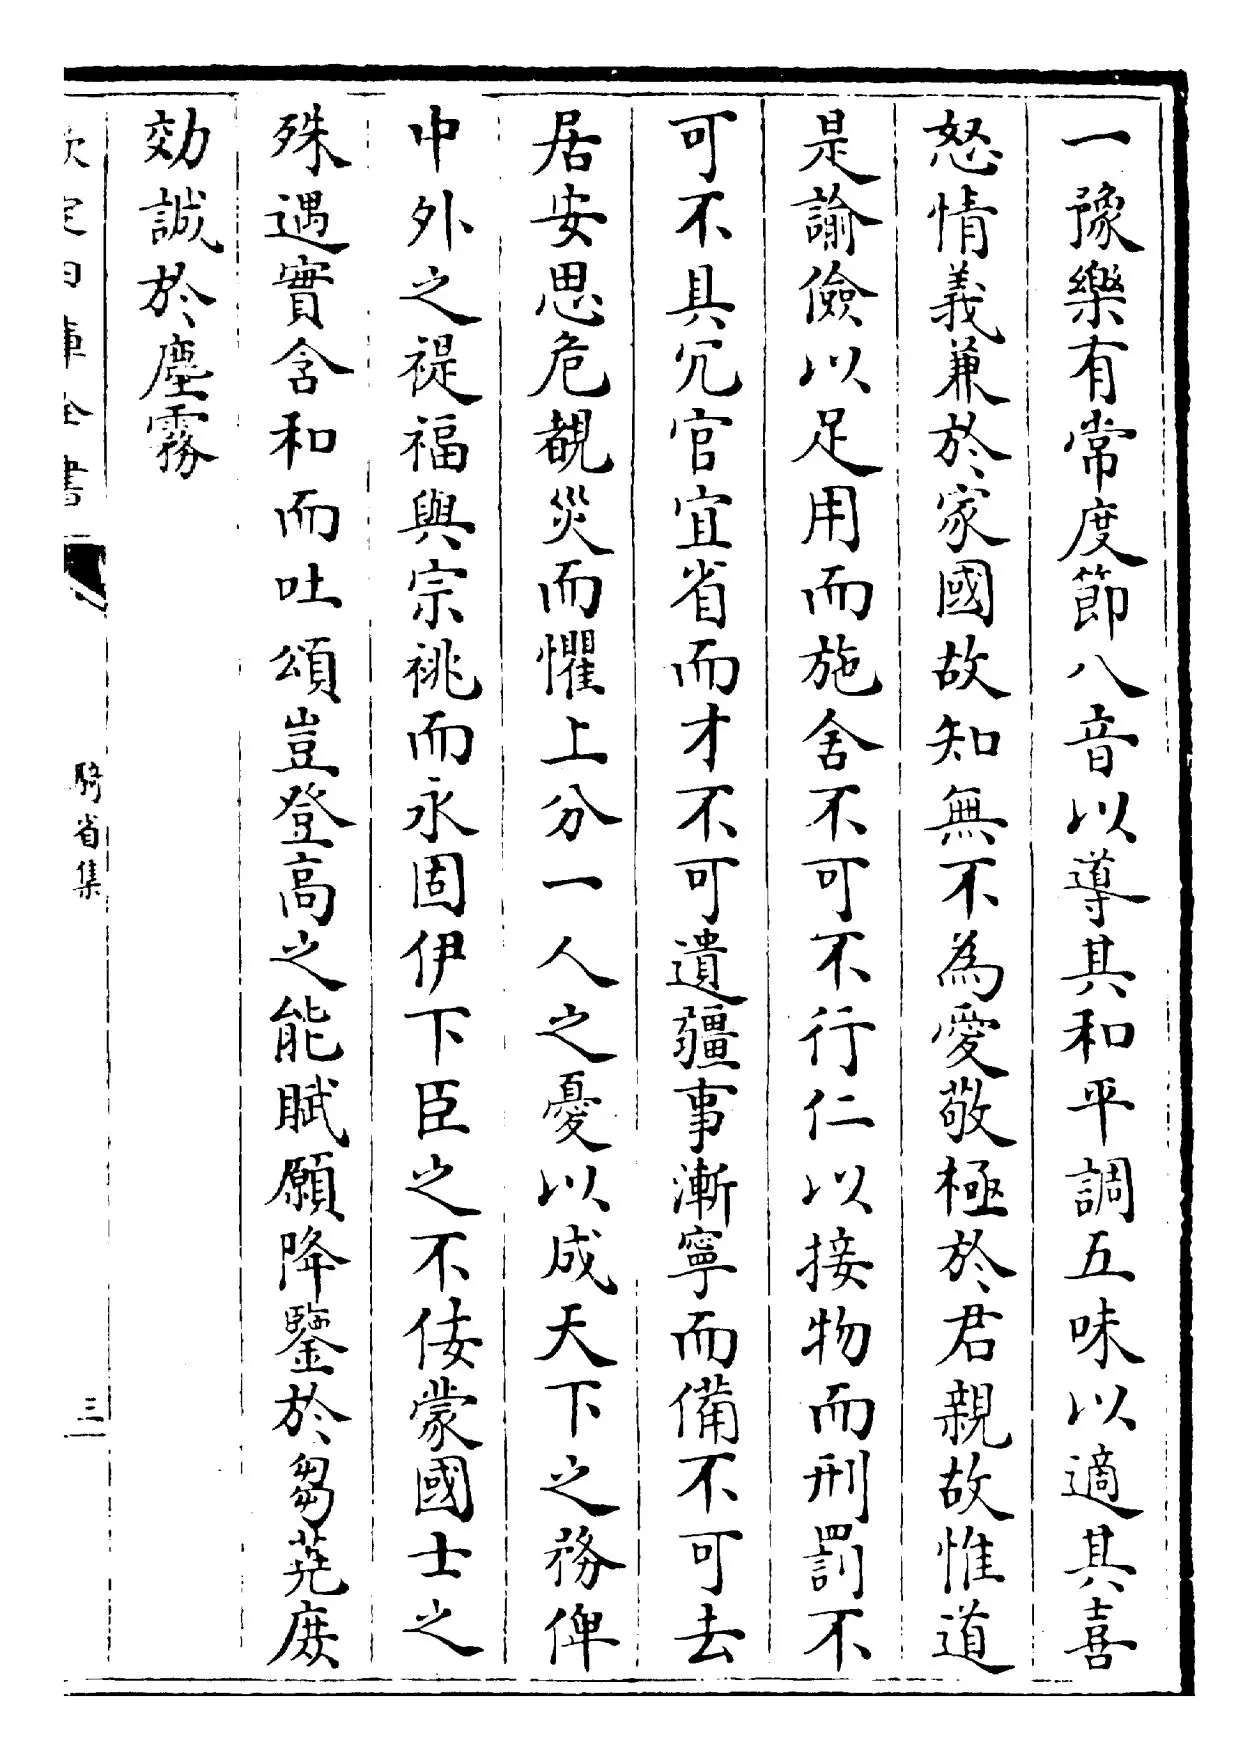 一豫樂有常度節八音以導其和平調五味以適其喜
怒情義兼於家國故知無不為愛敬極於君親故惟道
是諭儉以足用而施舍不可不行仁以接物而刑罰不
可不具冗官宜省而才不可遺疆事漸寧而備不可去
居安思危覩災而懼上分一人之憂以成天下之務俾
中外之禔福與宗祧而永固伊下臣之不佞蒙國士之
殊遇實含和而吐頌豈登高之能賦願降鑒於芻蕘庶
効誠於塵霧
欽定四庫全書
騎省集
三